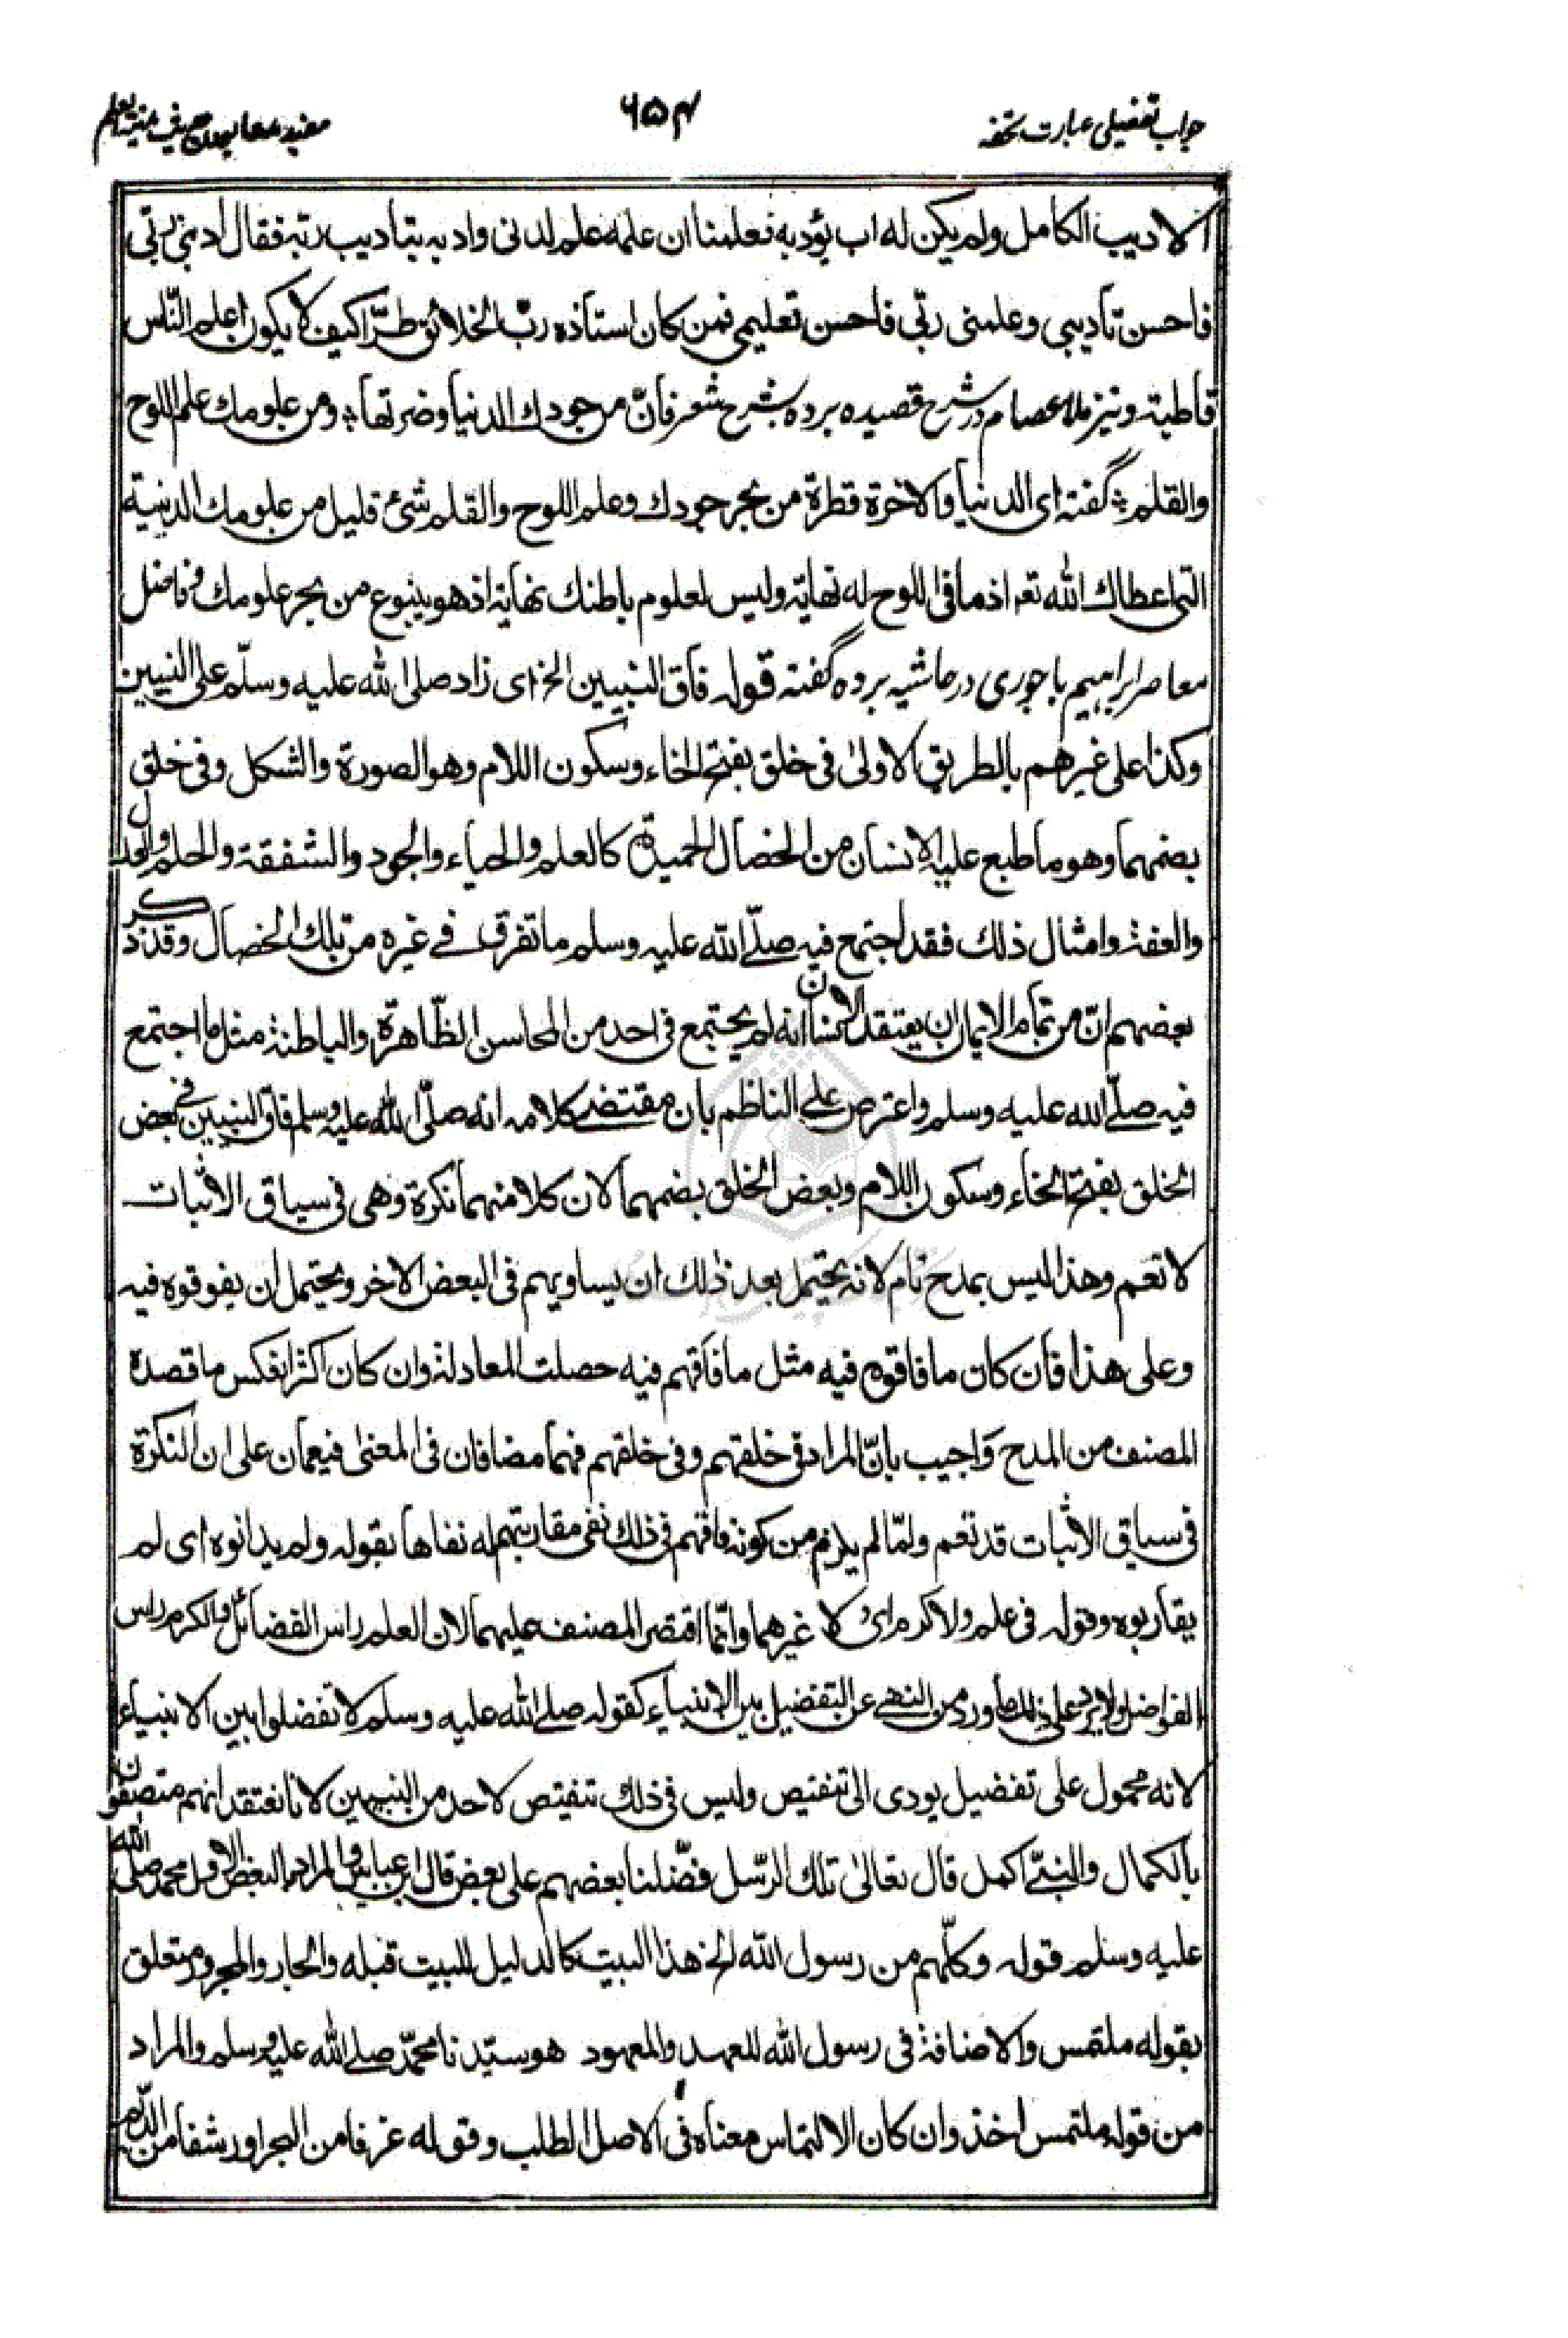 جواب تفصیلی عبارت تحفه
۶۵۴
مفید
الادیب الکامل ولم یکن له اب یؤدبه فعلمنا ان علمه علم لدنی وادبه بتادیب ربّه فقال ادّبنی ربّی
فاحسن تأدیبی وعلمنی ربّی فاحسن تعلیمی فمن کان استاذه ربّ الخلائق طرّا کیف لا یکون اعلم النّاس
قاطبة ونیز ملا عصام در شرح قصیده برده بشرح شعر فانّ من جودك الدنیا وضرتها ؛ ومن علومك علم اللوح
والقلم ؛ گفته ای الدنیا والاخرة قطرة من بحر جودك وعلم اللوح والقلم شئ قلیل من علومك الدینیة
التی اعطاك الله تعم اذ ما فی اللوح له نهایة ولیس لعلوم باطنك نهایة اذ هو ینبوع من بحر علومك وفاضل
معاصر ابراهیم باجوری در حاشیه برده گفته قوله فاق النبیین الخ ای زاد صلی الله علیه وسلّم علی النبیین
وکذا علی غیرهم بالطریق الاولیٰ فی خلق بفتح الخاء وسکون اللام وهو الصورة والشکل وفی خلق
بضمهما وهو ما طبع علیه الانسان من الخصال الحمیدة کالعلم والحیاء والجود والشفقة والحلم والعدل
والعفة وامثال ذلك فقد اجتمع فیه صلّی الله علیه وسلم ما تفرق فی غیره من تلك الخصال وقد ذکر
بعضهم انّ من تمام الایمان ان یعتقد الانسان انه لم یجتمع فی احد من المحاسن الظّاهرة والباطنة مثل ما اجتمع
فیه صلّی الله علیه وسلم واعترض علی الناظم بان مقتضی کلامه انه صلّی الله علیه وسلم فاق النبیین فی بعض
الخلق بفتح الخاء وسکون اللام وبعض الخلق بضمهما لان کلا منهما نکرة وهی فی سیاق الاثبات
لا تعم وهذا لیس بمدح تام لانه یحتمل بعد ذلك ان یساویهم فی البعض الاخر ویحتمل ان یفوقوه فیه
وعلی هذا فان کان ما فاقوه فیه مثل ما فاقهم فیه حصلت المعادلة وان کان اکثر انعکس ما قصده
المصنف من المدح واجیب بانّ المراد فی خلقهم وفی خلقهم فهما مضافان فی المعنیٰ فیعمان علی ان النکرة
فی سیاق الاثبات قد تعم ولمّا لم یلزم من کونه فاقهم فی ذلك نفی مقاربتهم له نفاها بقوله ولم یدانوه ای لم
یقاربوه وقوله فی علم ولا کرم ای ولا غیرهما وانّما اقتصر المصنف علیهما لان العلم راس الفضائل والکرم راس
الفواضل ولا یرد علی ذلك ما ورد من النهی عن التفضیل بین الانبیاء کقوله صلی الله علیه وسلم لا تفضلوا بین الانبیاء
لانه محمول علی تفضیل یودی الی تنقیص ولیس فی ذلك تنقیص لاحد من النبیین لانا نعتقد انهم متصفون
بالکمال والنبی اکمل قال تعالیٰ تلك الرّسل فضّلنا بعضهم علی بعض قال ابن عباس والمراد بالبعض الاول محمد صلی الله
علیه وسلم قوله وکلّهم من رسول الله الخ هذا البیت کالدلیل للبیت قبله والجار والمجرور متعلق
بقوله ملتمس والاضافة فی رسول الله للعهد والمعهود هو سیّدنا محمّد صلی الله علیه وسلم والمراد
من قوله ملتمس اخذ وان کان الالتماس معناه فی الاصل الطلب وقوله غرفا من البحر او رشفا من الدّیم